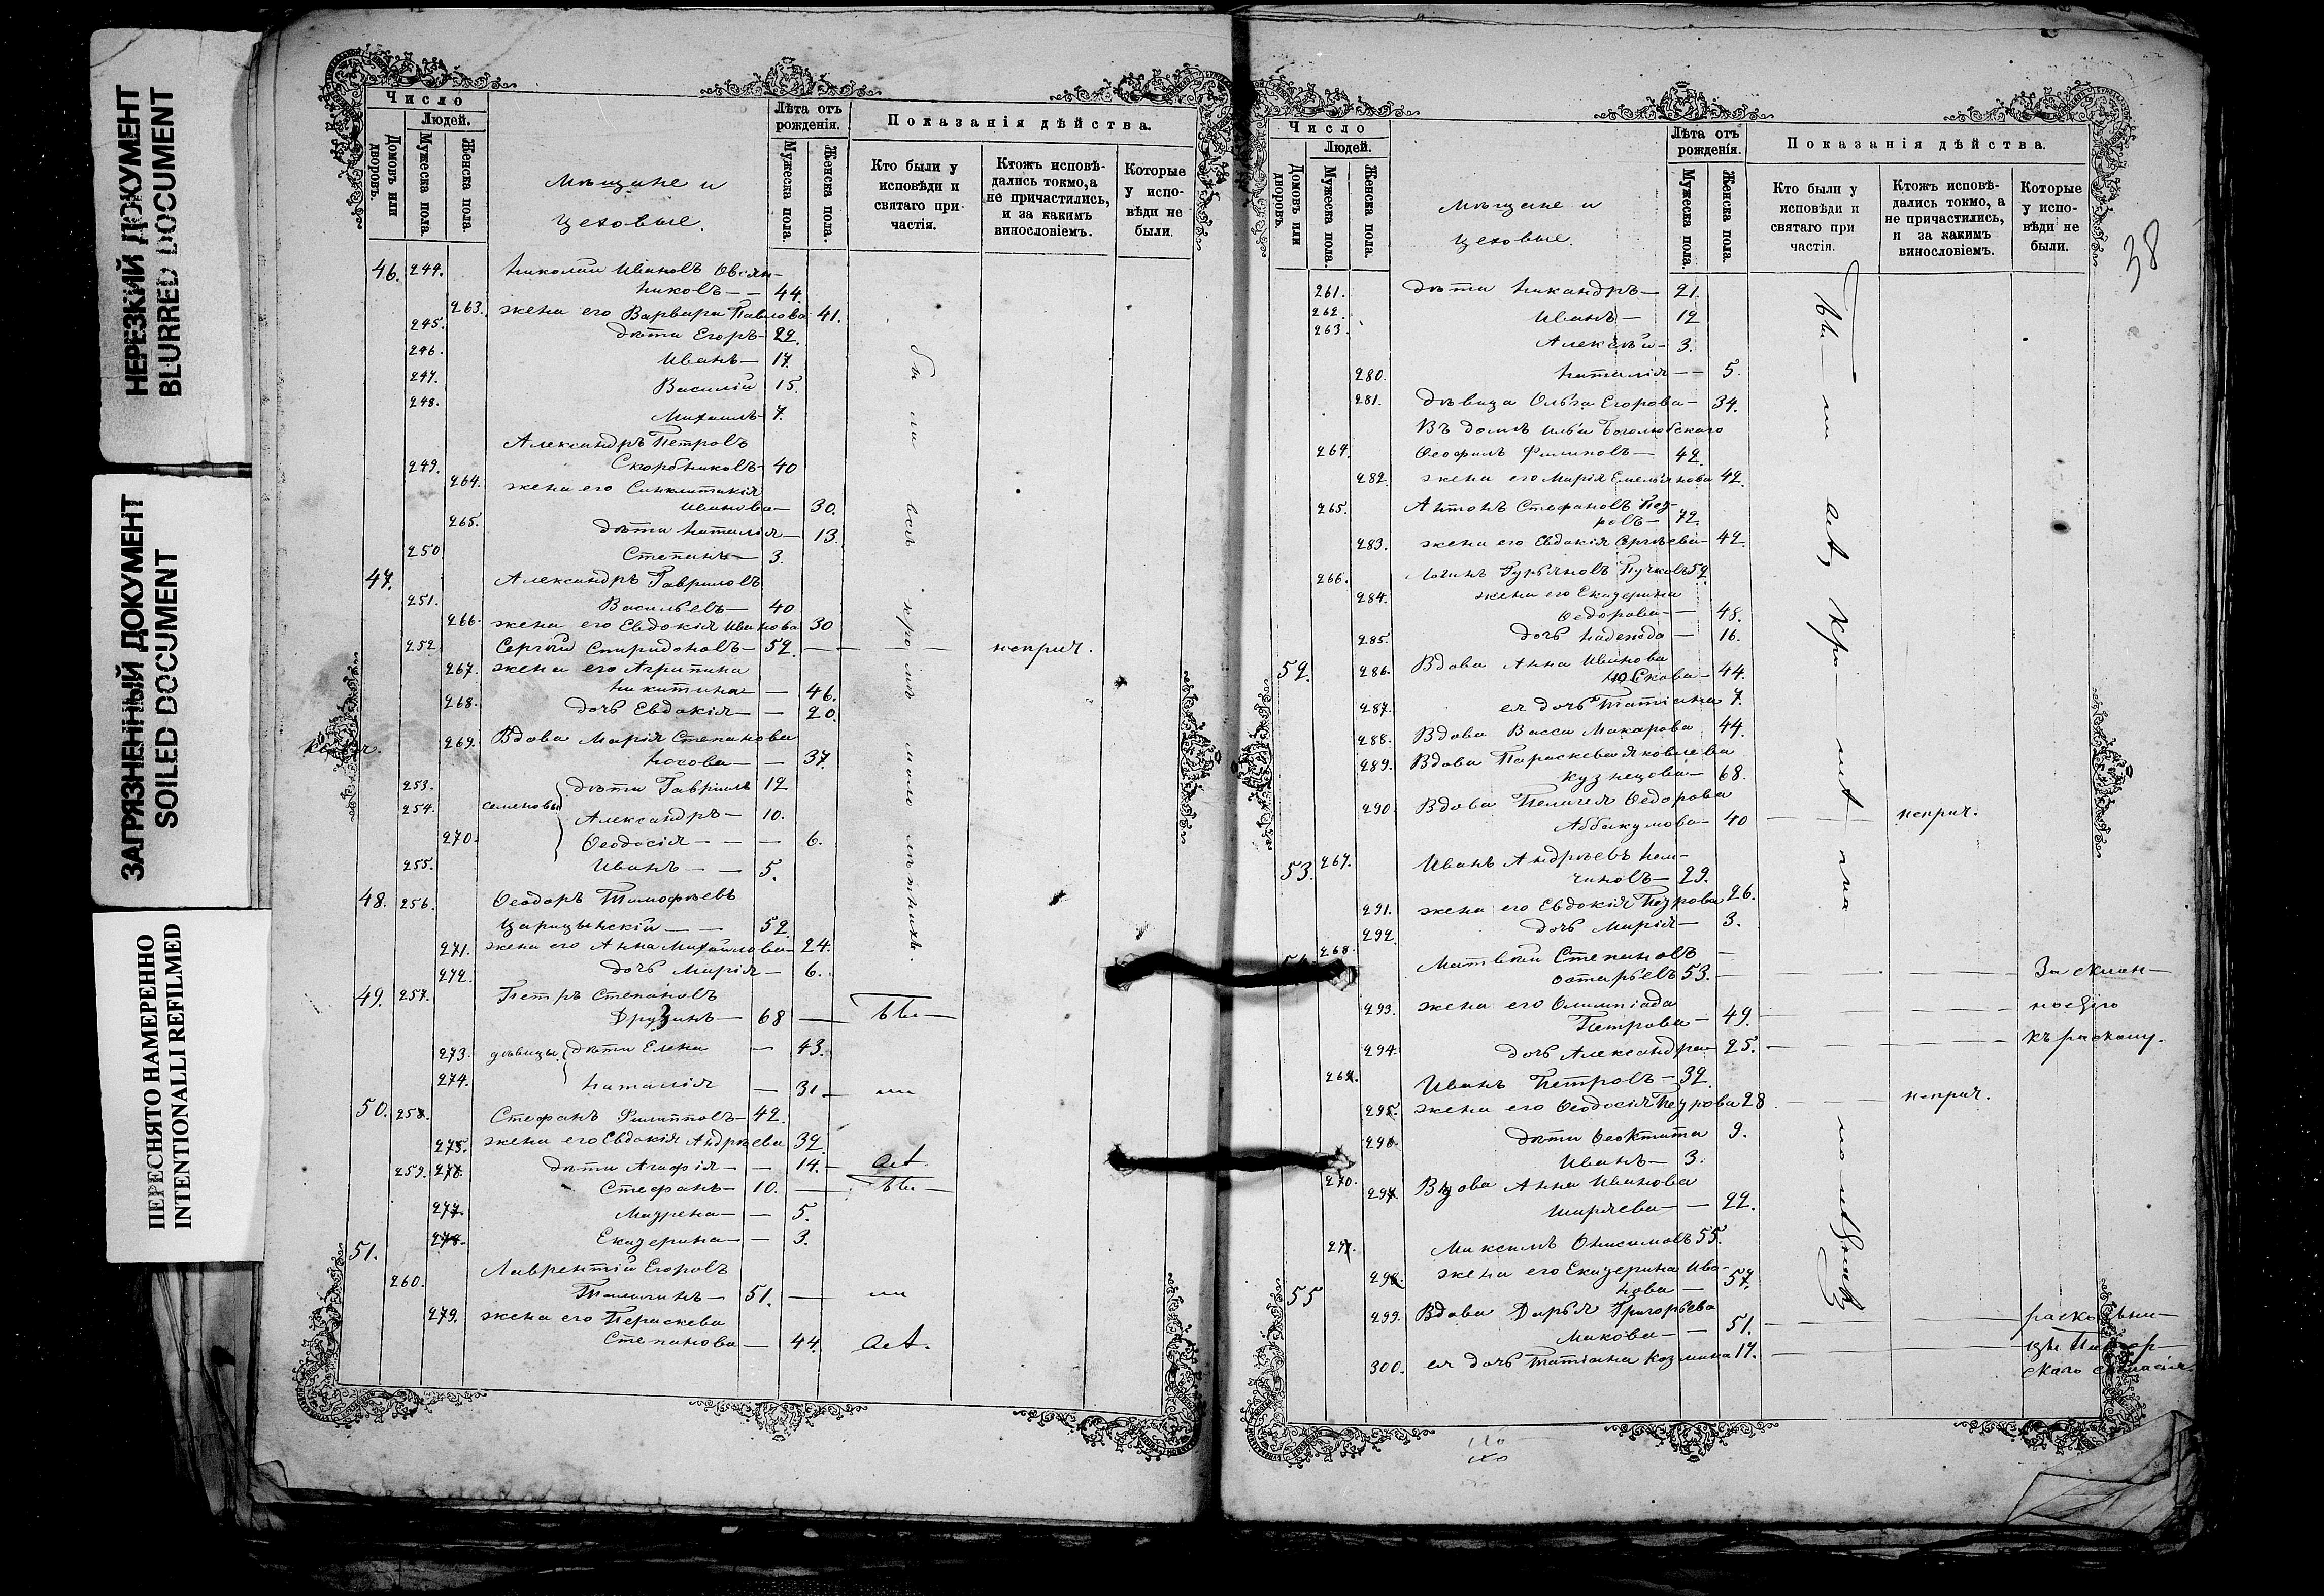 НЕРЕЗКИЙ ДОКУМЕНТ
BLURRED DOCUMENT
ЗАГРЯЗНЕННЫЙ ДОКУМЕНТ
SOILED DOCUMENT
ПЕРЕСНЯТО НАМЕРЕННО
INTENTIONALLI REFILMED
Число
Людей.
Домовъ или дворовъ.
Мужеска пола.
Женска пола.
Мѣщане и
цеховые.
Лѣта отъ рожденія.
Мужеска пола.
Женска пола.
Показанія дѣйства.
Кто были у исповѣди и святаго причастія.
Ктожъ исповѣдались токмо, а не причастились, и за какимъ винословіемъ.
Которые у исповѣди не были.
46. 244. Николай Ивановъ Овсян-
никовъ — 44.
263. жена его Варвара Павлова 41.
245. дѣти Егоръ — 22.
246. Иванъ — 17.
247. Василій 15.
248. Михаилъ — 7.
Александръ Петровъ
249. Скорбниковъ — 40
264. жена его Синклитикія
Иванова — 30.
265. дѣти Наталія — 13.
250 Степанъ — 3.
47. Александръ Гавриловъ
251. Васильевъ — 40
266. жена его Евдокія Иванова 30
252. Сергѣй Спиридоновъ — 52. — — — неприч.
267. жена его Агрипина
Никитина — 46.
268. дочь Евдокія — — 20.
269. Вдова Марія Степанова
Носова — — 37.
253. дѣти Гавріилъ 12
254. Семеновы Александръ — 10.
270. Ѳеодосія — — — 6.
255. Иванъ — — 5.
48. 256. Ѳеодоръ Тимофѣевъ
Царицынскій — — 52.
271. жена его Анна Михайлова — 24.
272. дочь Марія — 6.
49. 257. Петръ Степановъ
Друзинъ — 68 — Бы —
273. дѣвицы дѣти Елена — 43.
274. Наталія — 31 — ли
50. 258. Стефанъ Филипповъ — 42.
275. жена его Евдокія Андрѣева 39.
259. 277. дѣти Агафія — — 14. — всѣ
Стефанъ — 10. —
277. Мавра — — 5.
278. Екатерина — — 3.
51.
260. Лаврентій Егоровъ
51. — ли
279. жена его Параскева
Степанова — 44. всѣ
были всѣ кромѣ малолѣтнихъ.
38
Число
Людей.
Домовъ или дворовъ.
Мужеска пола.
Женска пола.
Мѣщане и
цеховые.
Лѣта отъ рожденія.
Мужеска пола.
Женска пола.
Показанія дѣйства.
Кто были у исповѣди и святаго при частія.
Ктожъ исповѣдались токмо, а не причастились, и за какимъ винословіемъ.
Которые у исповѣди не были.
261. дѣти Никандръ — 21.
262. Иванъ — 12
263. Алексѣй — 3.
280. Наталія — — 5.
281. Дѣвица Ольга Егорова — 34.
Въ домѣ Ильи Боголюбскаго
264. Ѳеофилъ Филиповъ — 42.
282. жена его Марія Емельянова 42.
265. Антонъ Стефановъ Пет-
ровъ — 72.
283. жена его Евдокія Сергѣева — 42.
266. Логинъ Гурьяновъ Пучковъ 52.
284. жена его Екатерина
Ѳедорова — — 48.
285. дочь Надежда — 16.
52. 286. Вдова Анна Иванова
44.
287. ея дочь Татіана 7.
288. Вдова Васса Макарова 44.
289. Вдова Параскева Яковлева
Кузнецова — 68.
290. Вдова Пелагея Ѳедорова
Аббакумова — 40 — — неприч.
53. 267. Иванъ Андрѣевъ Нем-
чиновъ — 29.
291. жена его Евдокія Петрова 26.
292. дочь Марія — 3.
268. Матвѣй Степановъ —
53. — — За склон-
293. жена его Олимпіада ностію
Петрова — 49. — — —
294. дочь Александра — 25. — — — къ расколу.
269. Иванъ Петровъ — 32.
295. жена его Ѳеодосія Петрова 28. — — неприч.
296. дѣти Ѳеоктиста 9.
Иванъ — 3.
270. 297. Вдова Анна Иванова
Ширяева — — 22.
271. Максимъ Онисимовъ 55.
298. жена его Екатерина Ива-
нова — 57.
55
299. Вдова Дарья Григорьева — — раскольни-
Макова — — 51.
300. ея дочь Татіана Козмина 17. — —
скаго согласія
Бы — ли всѣ кро — мѣ ма — лолѣтнихъ